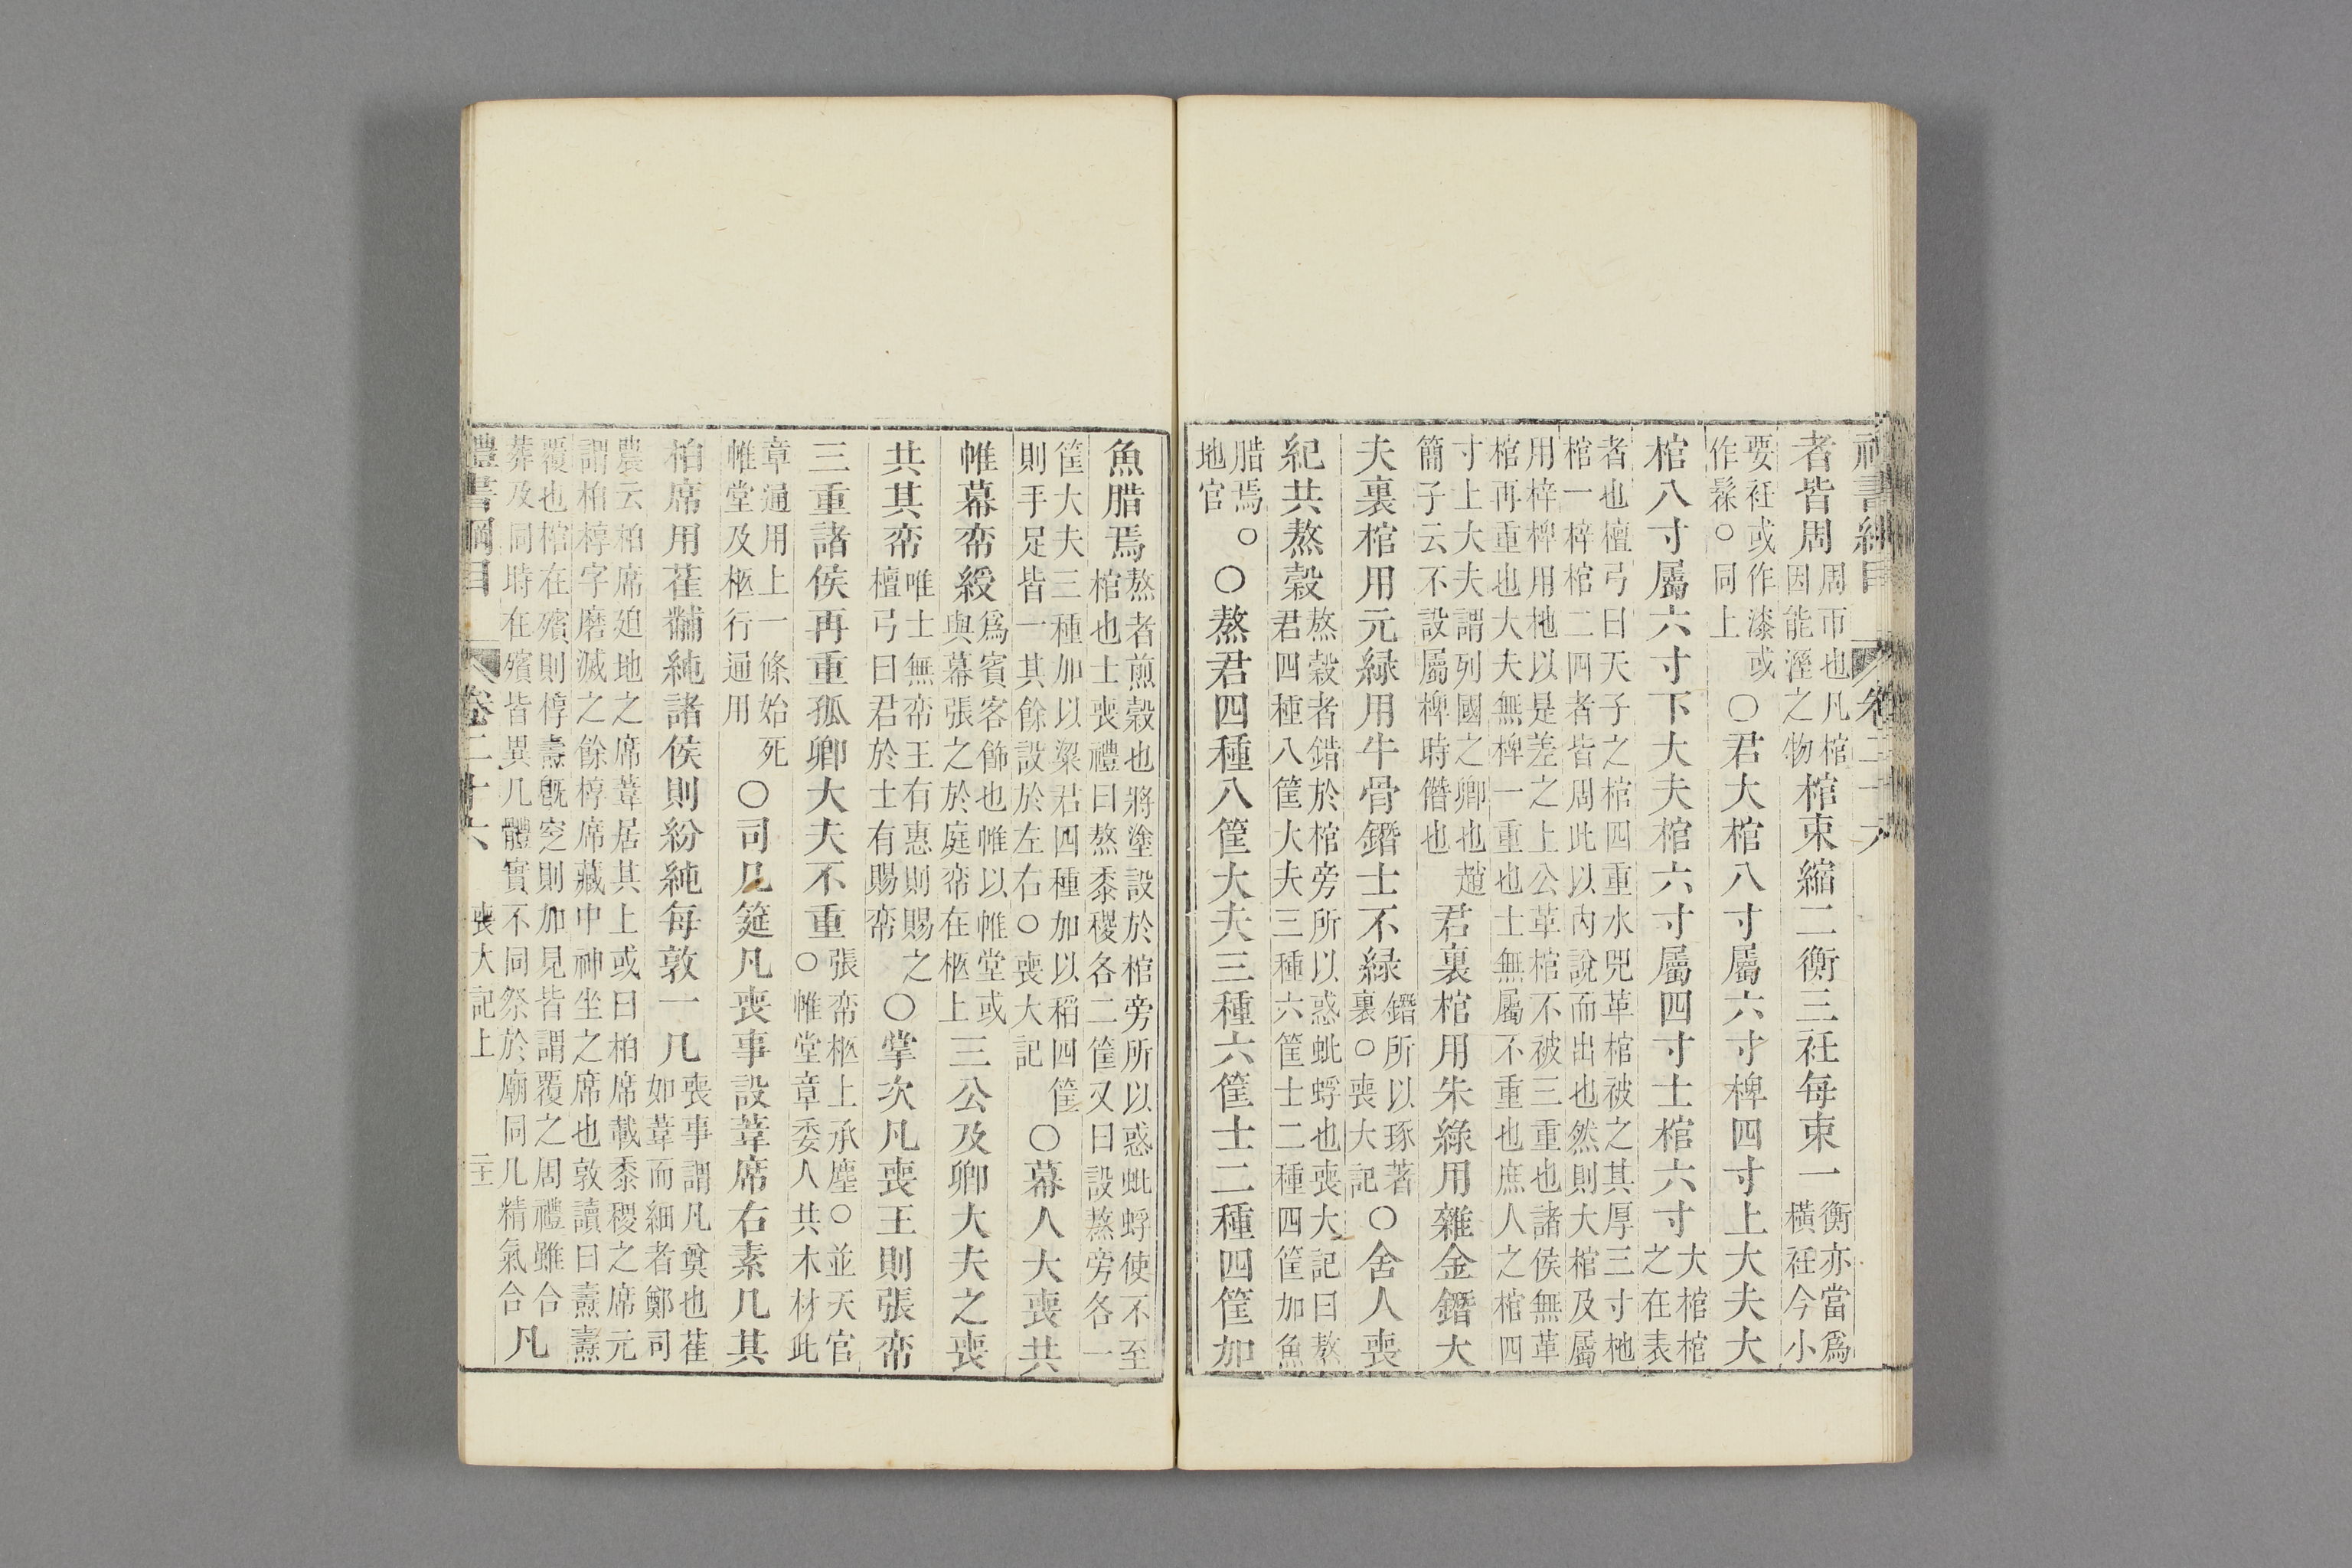 禮書綱目 卷二十六
者皆周周帀也凡棺因能溼之物棺束縮二衡三衽每束一衡亦當爲橫衽今小
要衽或作漆或作髹○同上○君大棺八寸屬六寸椑四寸上大夫大
棺八寸屬六寸下大夫棺六寸屬四寸士棺六寸大棺棺之在表
者也檀弓曰天子之棺四重水兕革棺被之其厚三寸杝棺一梓棺二四者皆周此以內說而出也然則大棺及屬
用梓椑用杝以是差之上公革棺不被三重也諸侯無革棺再重也大夫無椑一重也士無屬不重也庶人之棺四
寸上大夫謂列國之卿也趙簡子云不設屬椑時僭也君裏棺用朱綠用雜金鐕大
夫裏棺用元緑用牛骨鐕士不緑鐕所以琢著裏○喪大記○舍人喪
紀共熬穀熬穀者錯於棺旁所以惑蚍蜉也喪大記曰熬君四種八筐大夫三種六筐士二種四筐加魚
腊焉地官。○熬君四種八筐大夫三種六筐士二種四筐加
魚腊焉熬者煎穀也將塗設於棺旁所以惑蚍蜉使不至棺也士喪禮曰熬黍稷各二筐又曰設熬旁各一
筐大夫三種加以粱君四種加以稻四筐則手足皆一其餘設於左右○喪大記○幕人大喪共
帷幕帟綬爲賓客飾也帷以帷堂或與幕張之於庭帟在柩上三公及卿大夫之喪
共其帟唯士無帟王有惠則賜之檀弓曰君於士有賜帟○掌次凡喪王則張帟
三重諸侯再重孤卿大夫不重張帟柩上承塵○並天官○帷堂章委人共木材此
章通用上一條始死帷堂及柩行通用○司几筵凡喪事設葦席右素几其
柏席用萑黼純諸侯則紛純每敦一几喪事謂凡奠也萑如葦而細者鄭司
農云柏席迫地之席葦居其上或曰柏席載黍稷之席元謂柏椁字磨滅之餘椁席藏中神坐之席也敦讀曰燾燾
覆也棺在殯則椁燾既窆則加見皆謂覆之周禮雖合葬及同時在殯皆異几體實不同祭於廟同几精氣合凡
禮書綱目 卷二十六 喪大記上 二主